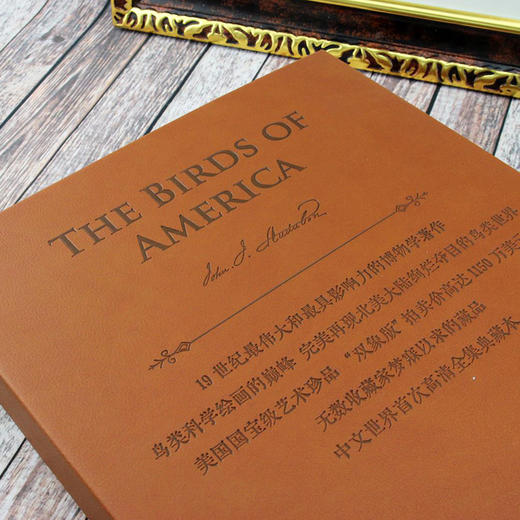 THE BIRDS OF
AMERICA
John J. Audubon
19世纪最伟大和最具影响力的博物学著作
鸟类科学绘画的巅峰 完美再现北美大陆绚烂夺目的鸟类世界
美国国宝级艺术珍品 “双象版”拍卖价高达1150万英
无数收藏家梦寐以求的藏品
中文世界首次高清全集典藏本